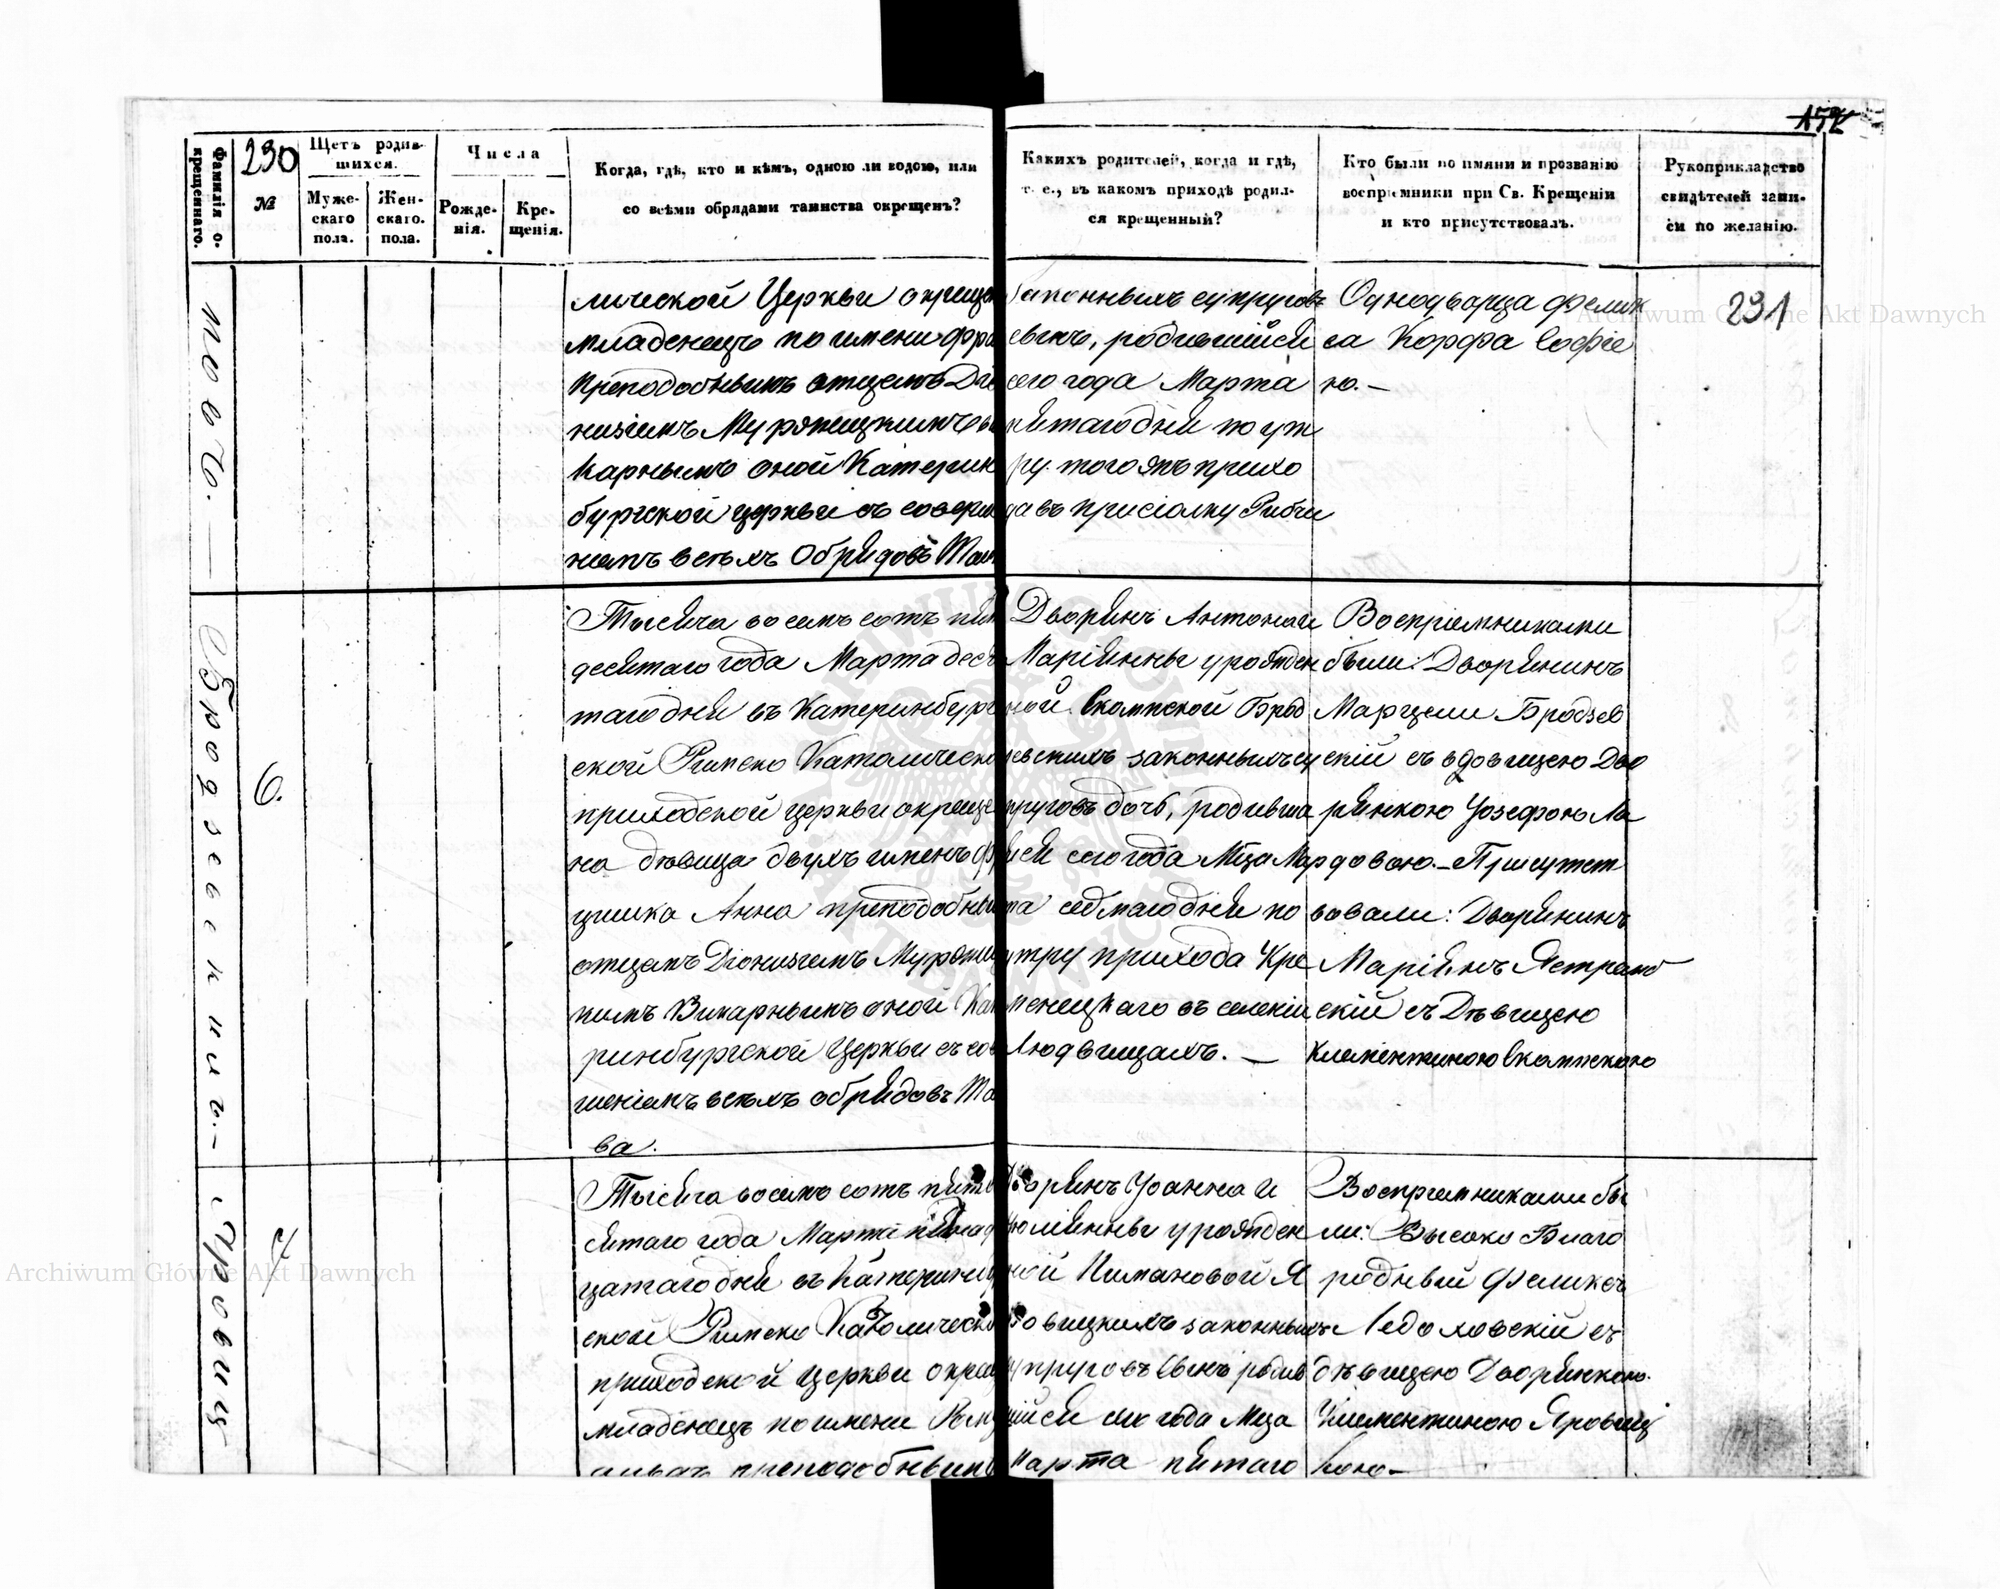 152
230
Фамилія о-
крещеннаго.
№
Щетъ родив-
шихся.
Муже-
скаго
пола.
Жен-
скаго.
пола.
Числа
Рожде-
нія.
Кре-
щенія.
Когда, гдѣ, кто и кѣмъ, одною ли водою, или
со всѣми обрядами таинства окрещенъ?
Какихъ родителей, когда и гдѣ,
т. е., въ какомъ приходѣ родил-
ся крещенный?
Кто были по имяни и прозванію
воспріемники при Св. Крещеніи
и кто присутствовалъ.
Рукоприкладство
свидѣтелей запи-
си по желанію.
231
лической Церкви окреще
младенецъ по имени Фра
Преподобнымъ отцемъ Діо
низіемъ Муравицкимъ Ви
карнымъ оной Катерин
бургской церкви съ соверш
ніемъ всѣхъ Обрядовъ Таин
законныхъ супруговъ
сынъ, родившійся
сего года Марта
пятаго дня по ут
ру. того жъ прихо
да въ присіолку
Однодворца Фелик
са Корфа Софіе
ю.
Бродзевскихъ.
6.
Тысяча восемь сотъ пят
десятаго года Марта деся
таго дня въ Катеринбург
ской Римско Католическо
приходской церкви окреще
на дѣвица двухъ именъ Фр
цишка Анна преподобным
отцемъ Діонизіемъ
кимъ Викарнымъ оной Кат
ринбургской Церкви съ сов
шеніемъ всѣхъ обрядовъ Та
ва.
Дворянъ Антона и
Маріянны урожден
ной Скомпской Брод
зевскихъ законныхъ су
пруговъ дочь, родивша
яся сего года Мца Мар
та седмаго дня по
утру прихода Кре
менецкаго въ селеніи
Людвищахъ.
Воспріемниками
были: Дворянинъ
Марцели Бродзев
скій съ вдовицею Дво
рянкою Іозефою Ла
довою. Присутст
вовали: Дворянинъ
Маріянъ Ястремб
скій съ Дѣвицею
Клементиною Скомпскою
Яровиц
7
Тысяча восемь сотъ пятде
сятаго года Марта
цатаго дня въ Катеринбур
ской Римско Католическо
приходской Церкви окрещ
младенецъ по имени
преподобным
Дворянъ Іоанна и
Юліянны урожден
ной Нимановой Я
ровицкихъ законныхъ
супруговъ сынъ родив
шійся сего года Мца
Марта пятаго
Воспріемниками бы
ли: Высоко Благо
родный Феликсъ
Ледоховскій съ
дѣвицею Дворянкою
Клементиною Яровиц
кою
Archiwum Główne Akt Dawnych
Archiwum Główne Akt Dawnych